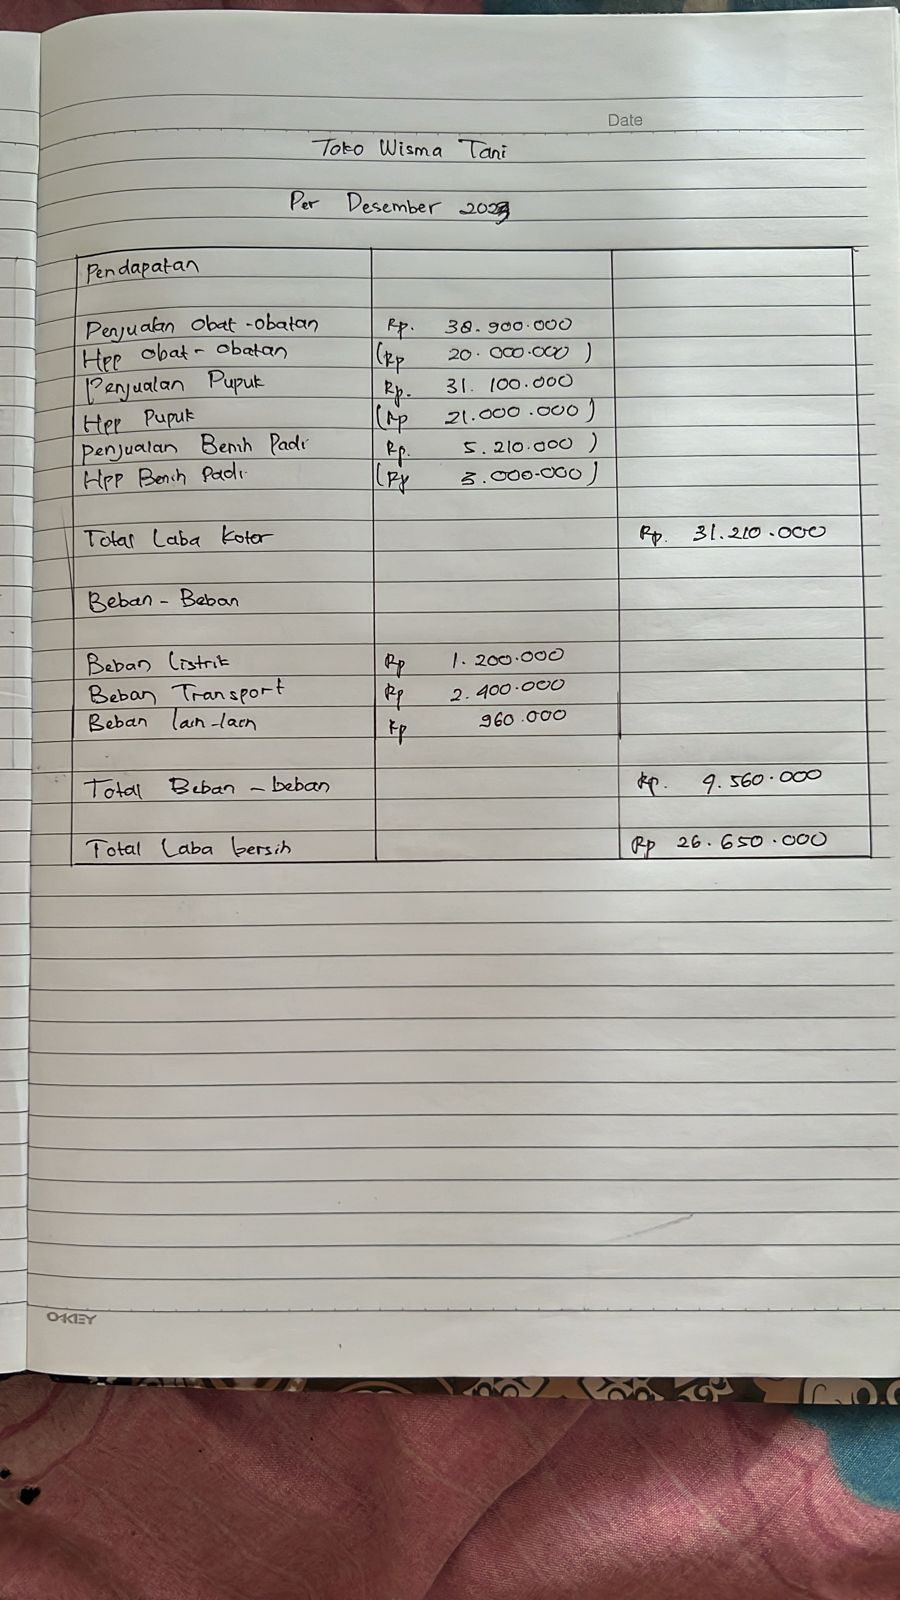 Date
Toko Wisma Tani
Per Desember 2023
Pendapatan
Penjualan Obat-obatan Rp. 38.900.000
Hpp obat-obatan (Rp 20.000.000)
Penjualan Pupuk Rp. 31.100.000
Hpp Pupuk (Rp 21.000.000)
Penjualan Benih Padi Rp. 5.210.000)
Hpp Benih Padi (Rp 3.000.000)
Total Laba Kotor Rp. 31.210.000
Beban-Beban
Beban Listrik Rp 1.200.000
Beban Transport Rp 2.400.000
Beban lain-lain Rp 960.000
Total Beban-beban Rp. 9.560.000
Total Laba bersih Rp 26.650.000
OKEY